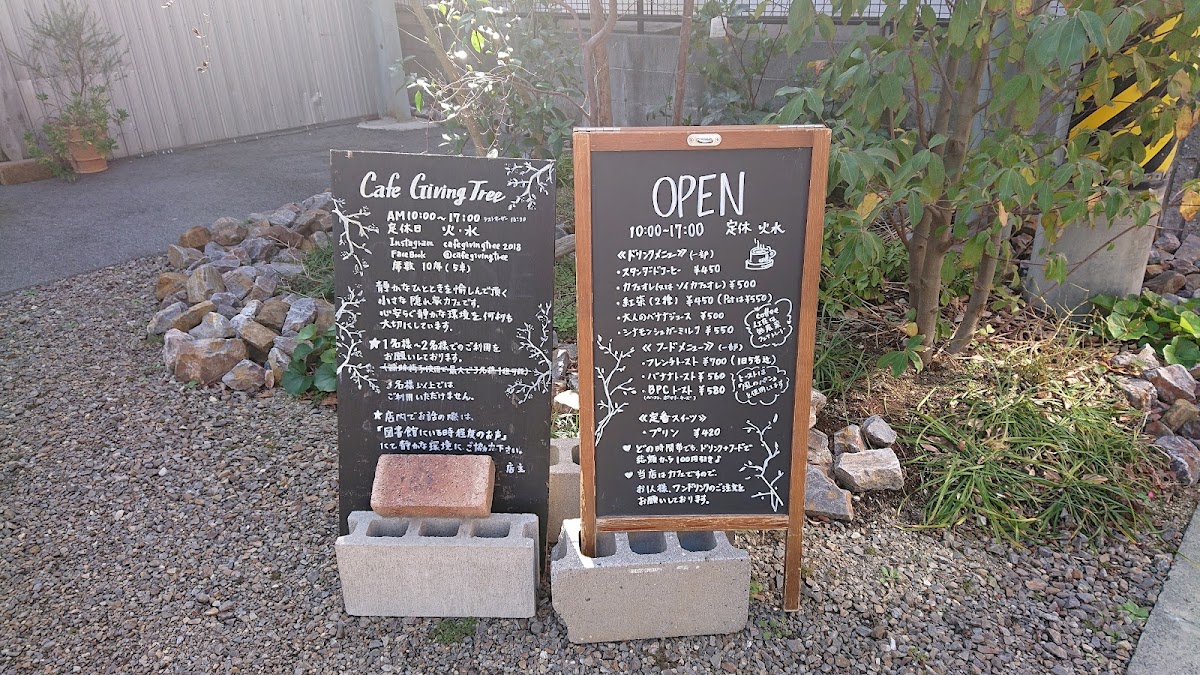 Cafe Giving Tree
AM10:00~17:00 ラストオーダー 16:30
定休日 火・水
Instagram cafegivingtree2018
FaceBook @cafegivingtree
席数 10席(5卓)
静かなひとときを愉しんで頂く
小さな隠れ家カフェです。
心安らぐ静かな環境を何よりも
大切にしています。
★1名様~2名様でのご利用を
お願いしております。
3名様以上では
ご利用いただけません。
★店内でお話の際は、
『図書館にいる時程度のお声』
にて静かな環境にご協力下さい。
店主
OPEN
10:00~17:00 定休 火水
≪ドリンクメニュー≫(一部)
・スタンダードコーヒー ¥450
・カフェオレ(又はソイカフェオレ) ¥500
・紅茶(2種) ¥450 (Potは¥550)
・大人のバナナジュース ¥500
・シナモンシュガーミルク ¥550
coffee
≪フードメニュー≫(一部)
・フレンチトースト ¥700 (1日5名迄)
・バナナトースト ¥560
・BPCトースト ¥580
トーストは
≪定番スイーツ≫
・プリン ¥420
♥どの時間帯でも、ドリンク+フードで
総額から100円引き♪
♥当店はカフェですので、
お1人様、ワンドリンクのご注文を
お願いしております。